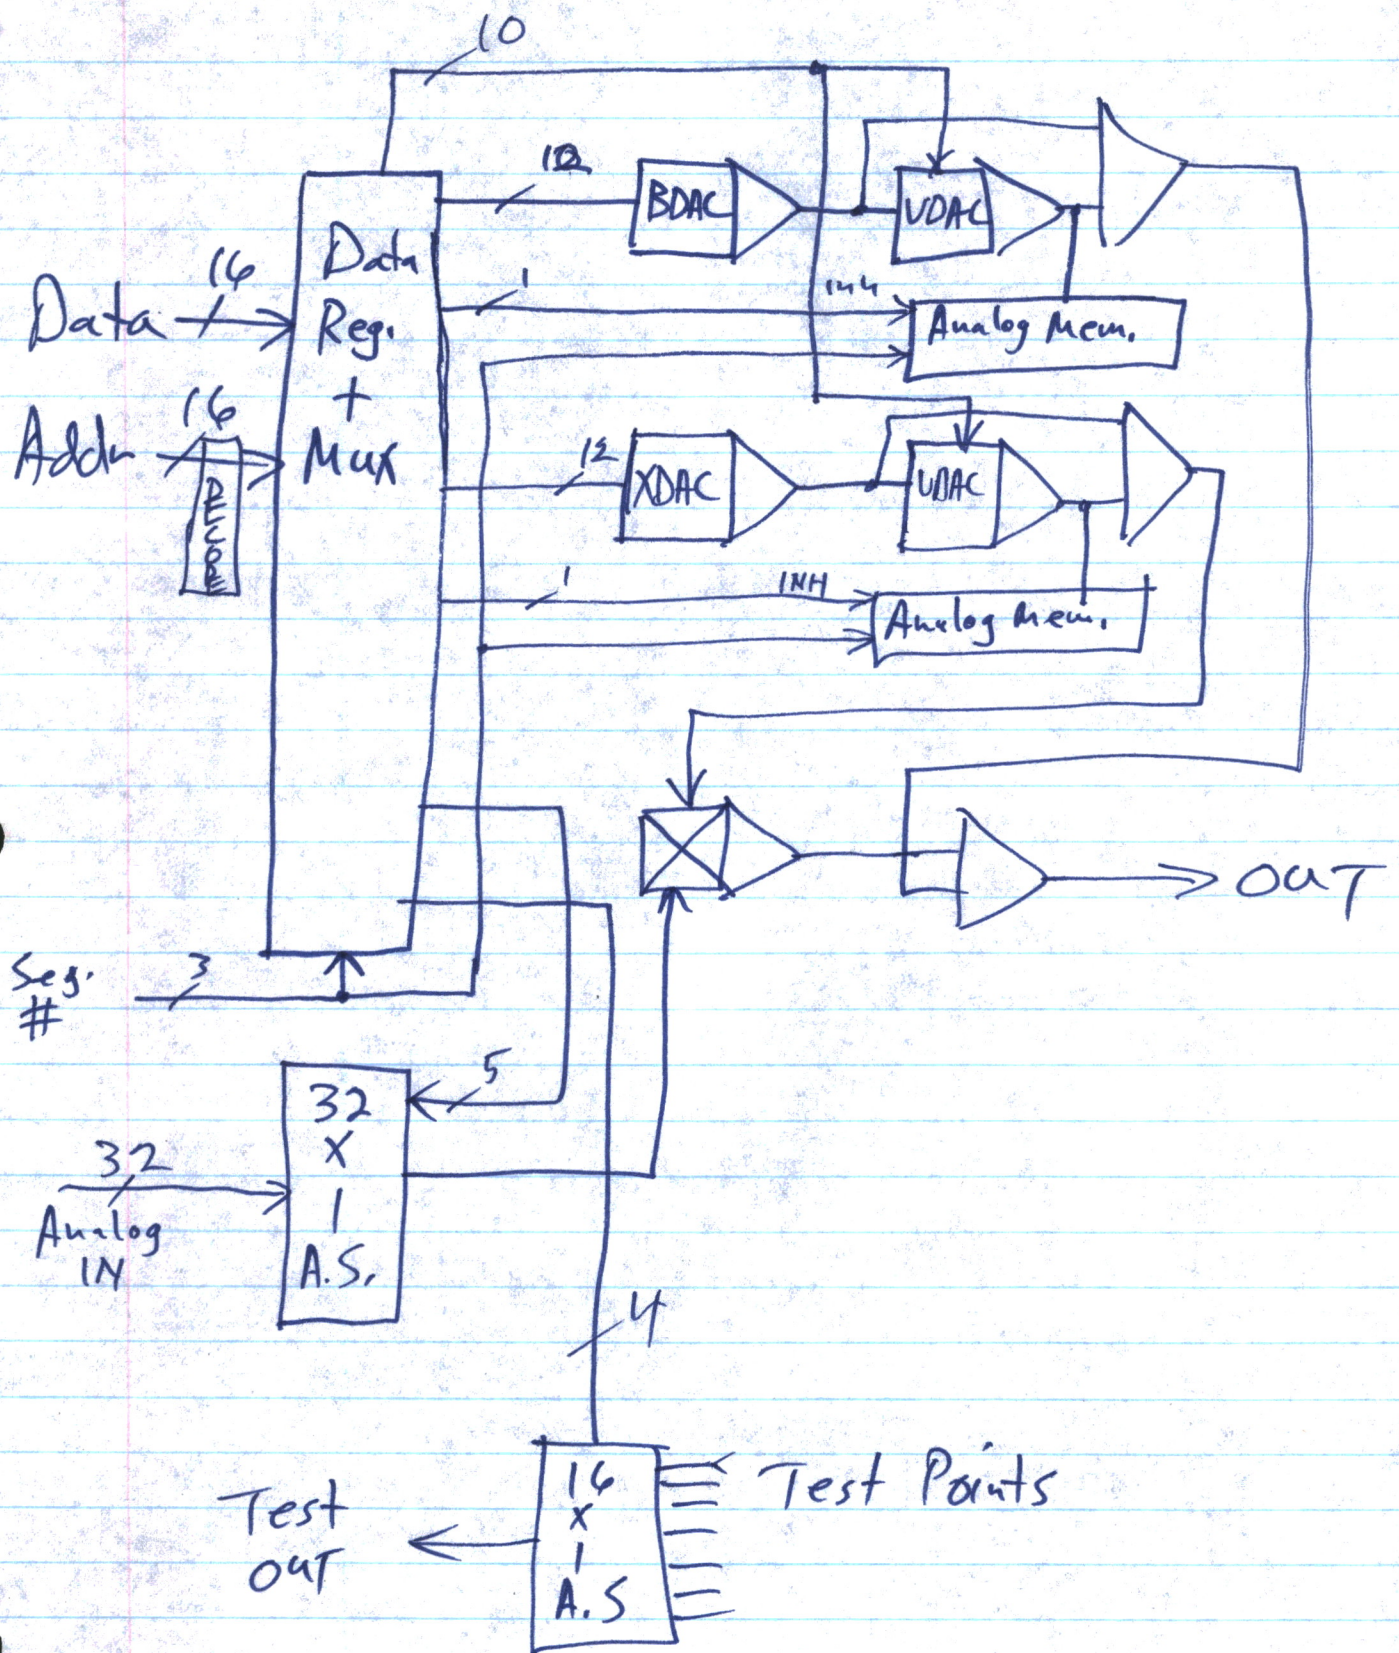 10
12
BDAC
VDAC
16
Data
Data
Reg.
+
Mux
1
INH
Analog Mem.
16
Addr
DECODE
12
XDAC
VDAC
1
INH
Analog Mem.
OUT
Seg.
#
3
5
32
X
1
A.S.
32
Analog
IN
4
16
X
1
A.S
Test Points
Test
OUT